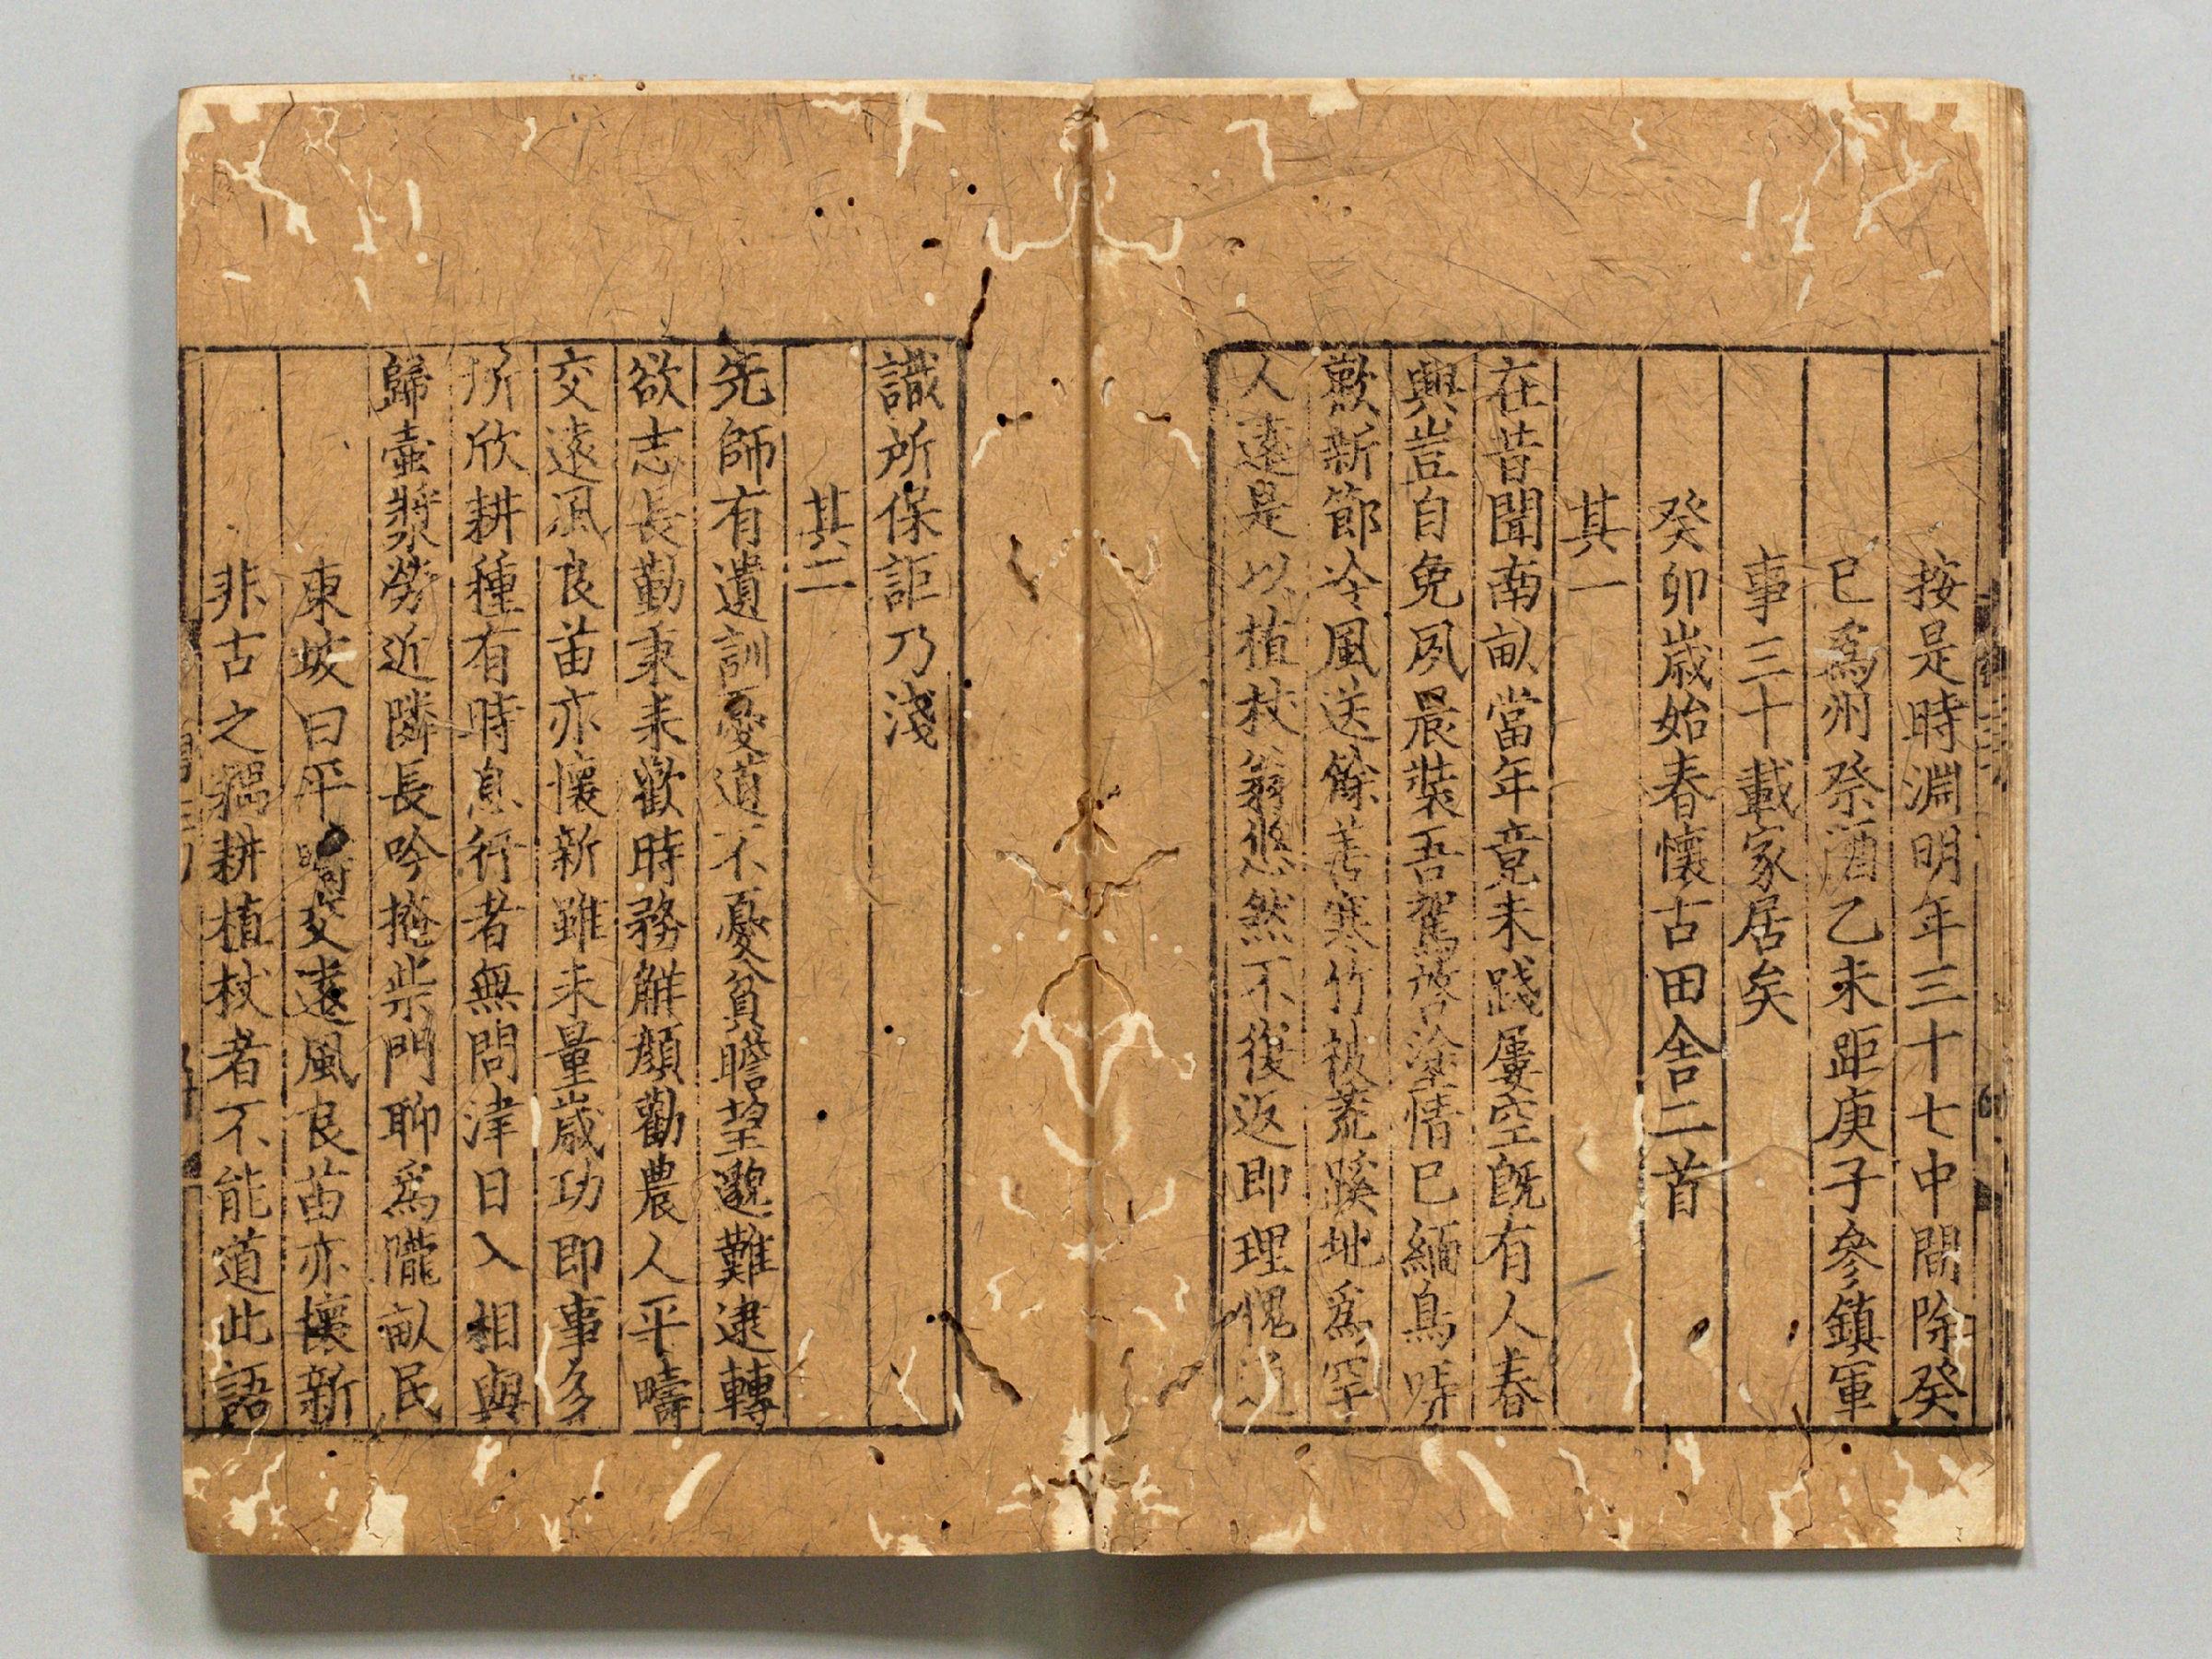 按是時淵明年三十七中間除癸
巳爲州祭酒乙未距庚子參鎮軍
事三十載家居矣
癸卯歳始春懷古田舎二首
其一
在昔聞南畝當年竟未踐屢空旣有人春
興豈自免夙晨裝吾駕啓塗情巳緬鳥哢
歡新節冷風送餘善寒竹被荒蹊地爲罕
人遠是以植杖翁悠然不復返即理愧通
識所保詎乃淺
其二
先師有遺訓憂道不憂貧瞻望邈難逮轉
欲志長勤秉耒歡時務解顔勸農人平疇
交遠風良苗亦懷新雖未量歳功即事多
所欣耕種有時息行者無問津日入相與
歸壺漿勞近隣長吟掩柴門聊爲隴畝民
東坡曰平疇交遠風良苗亦懷新
非古之耦耕植杖者不能道此語